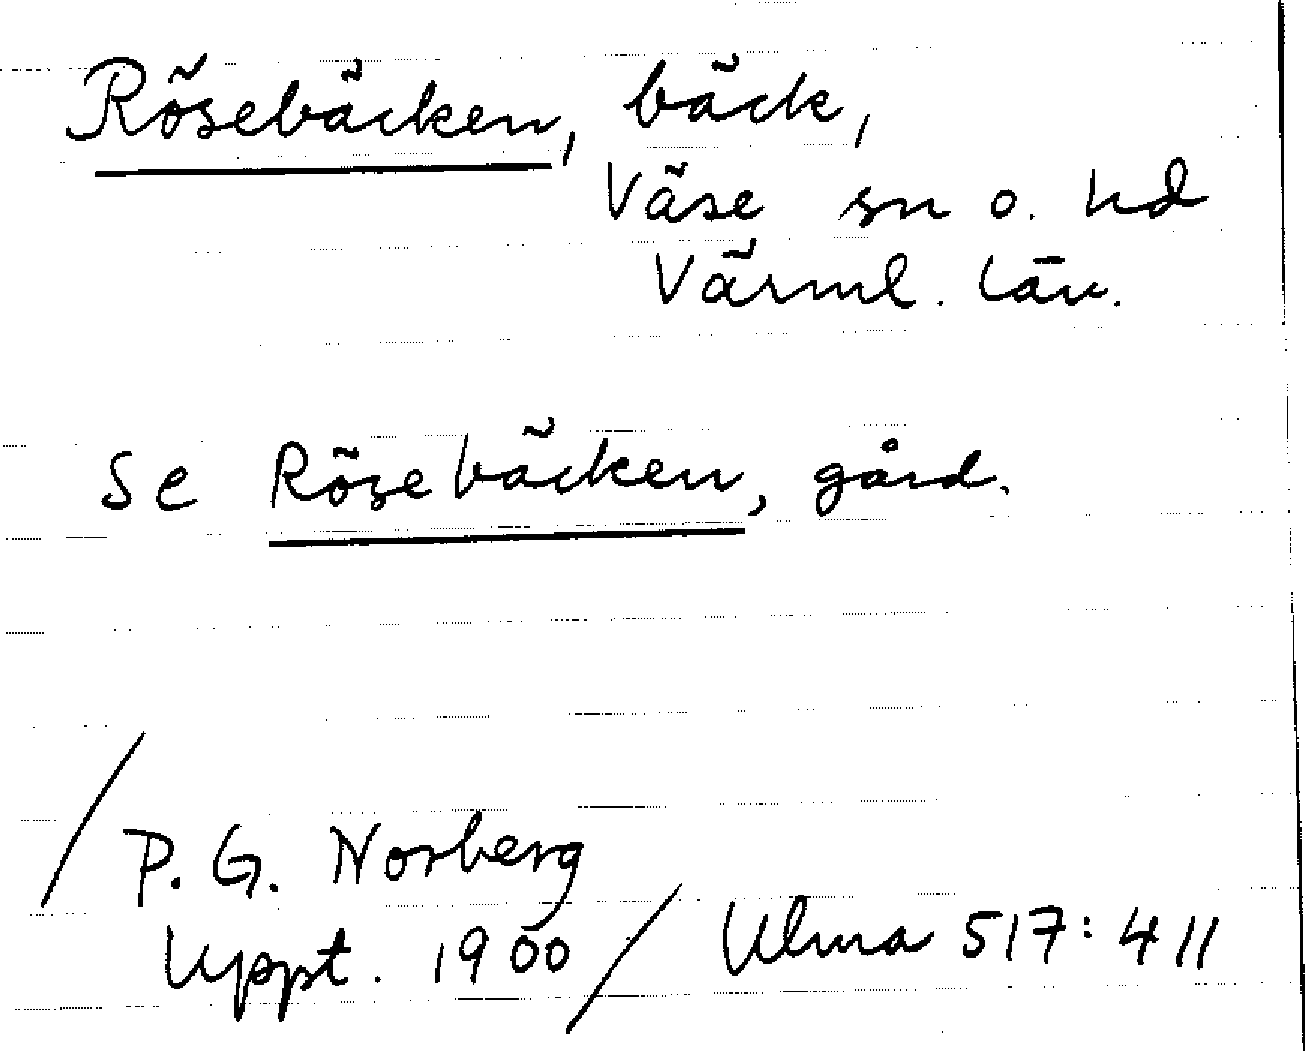 Rösebäcken, bäck,
Väse sn o. hd
Värml. län.
Se Rösebäcken, gård.
/P. G. Norberg
Uppt. 1900/ Ulma 517:411